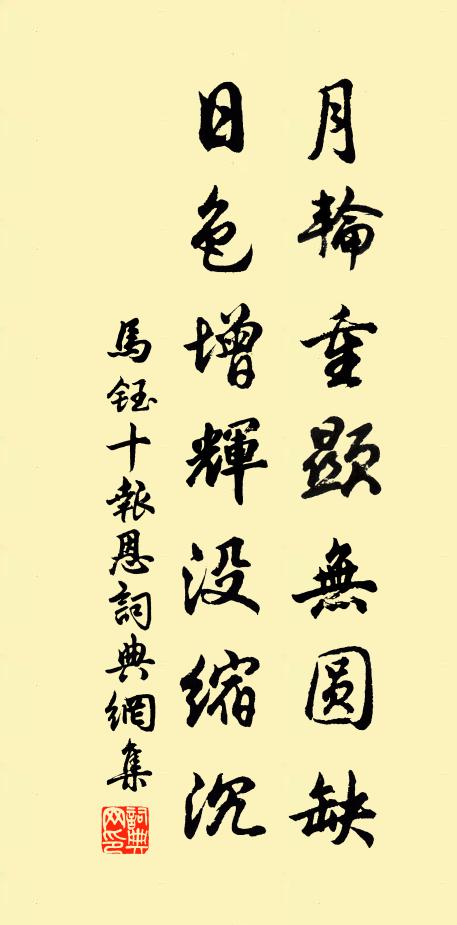 月輪重顯無圓缺
日色增輝没縮沉
馬鈺十報恩詞典網集
詞典网印